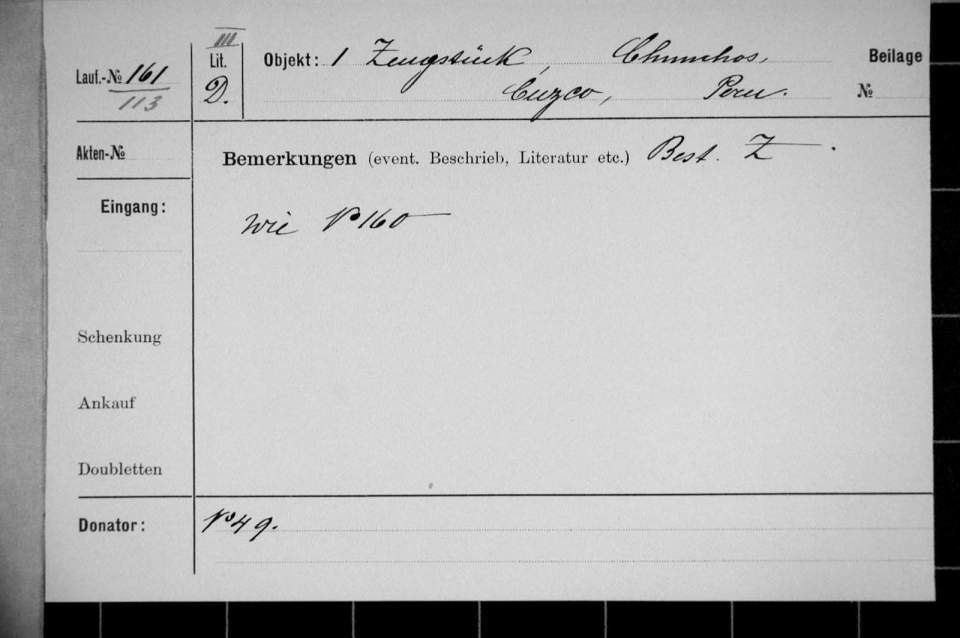 III
Lauf.-№ 161
113
Lit. D.
Objekt: 1 Zeugstück, Chunchos,
Cuzco, Peru.
Beilage
№
Akten-№
Bemerkungen (event. Beschrieb, Literatur etc.) Best. Z.
Eingang:
wie No 160
Schenkung
Ankauf
Doubletten
Donator: No 49.